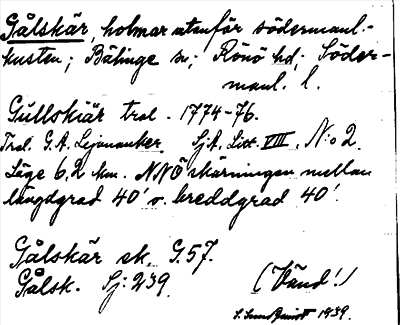 Gålskär, holmar utanför södermanl.-
kusten; Bälinge sn; Rönö hd; Söder-
manl. l.
Gullskiär tral. 1774-76.
Tral. G. A. Lejonanker. Sj.A. Litt. VIII. N:o 2.
Läge 6,2 km. NNÖ skärningen mellan
längdgrad 40' o. breddgrad 40'.
Gålskär sk. G.57.
Gålsk. Sj: 239.
(Vänd!)
S. Sundquist 1939.